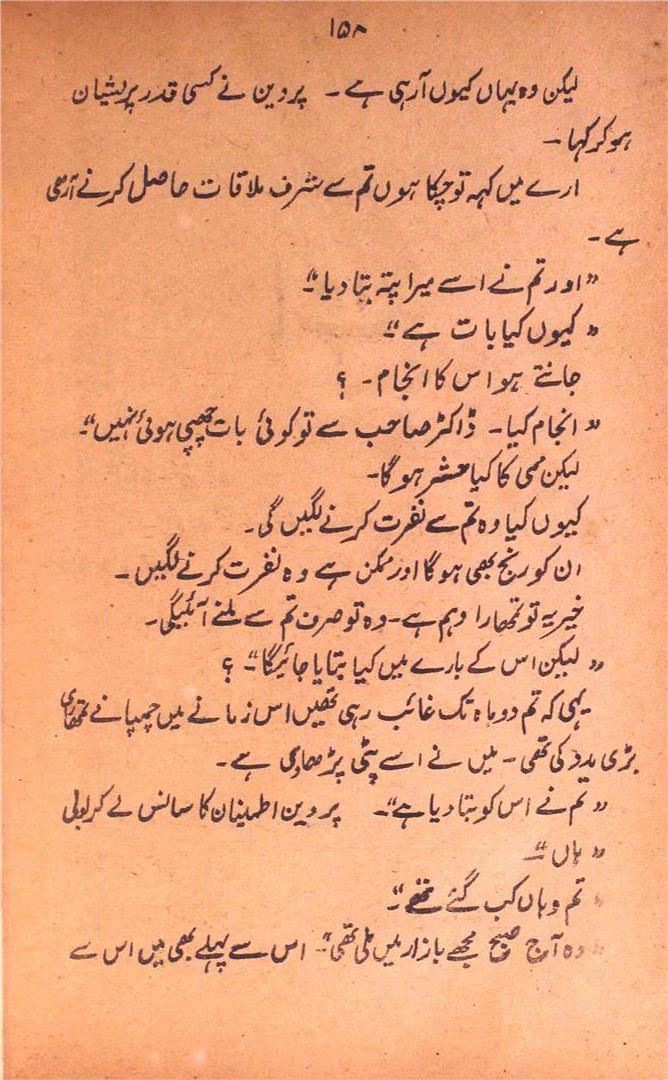 ۱۵۸
لیکن وہ یہاں کیوں آرہی ہے ۔ پروین نے کسی قدر پریشان
ہو کر کہا ۔
ارے میں کہہ تو چکا ہوں تم سے شرف ملاقات حاصل کرنے آرہی
ہے ۔
“اور تم نے اسے میرا پتہ بتا دیا”۔
“کیوں کیا بات ہے”۔
جانتے ہو اس کا انجام ۔ ؟
“انجام کیا ۔ ڈاکٹر صاحب سے تو کوئی بات چھپی ہوئی نہیں”۔
لیکن ممی کا کیا حشر ہو گا ۔
کیوں کیا وہ تم سے نفرت کرنے لگیں گی ۔
ان کو رنج بھی ہو گا اور ممکن ہے وہ نفرت کرنے لگیں ۔
خیر یہ تو تمھارا وہم ہے ۔ وہ تو صرف تم سے ملنے آئیگی ۔
“لیکن اس کے بارے میں کیا بتایا جائیگا”۔ ؟
یہی کہ تم دو ماہ تک غائب رہی تھیں اس زمانے میں چمپا نے تمھاری
بڑی مدد کی تھی ۔ میں نے اسے پٹی پڑھا دی ہے ۔
“تم نے اس کو بتا دیا ہے”۔ پروین اطمینان کا سانس لے کر بولی
“ہاں”۔
“تم وہاں کب گئے تھے”۔
“وہ آج صبح مجھے بازار میں ملی تھی”۔ اس سے پہلے بھی میں اس سے